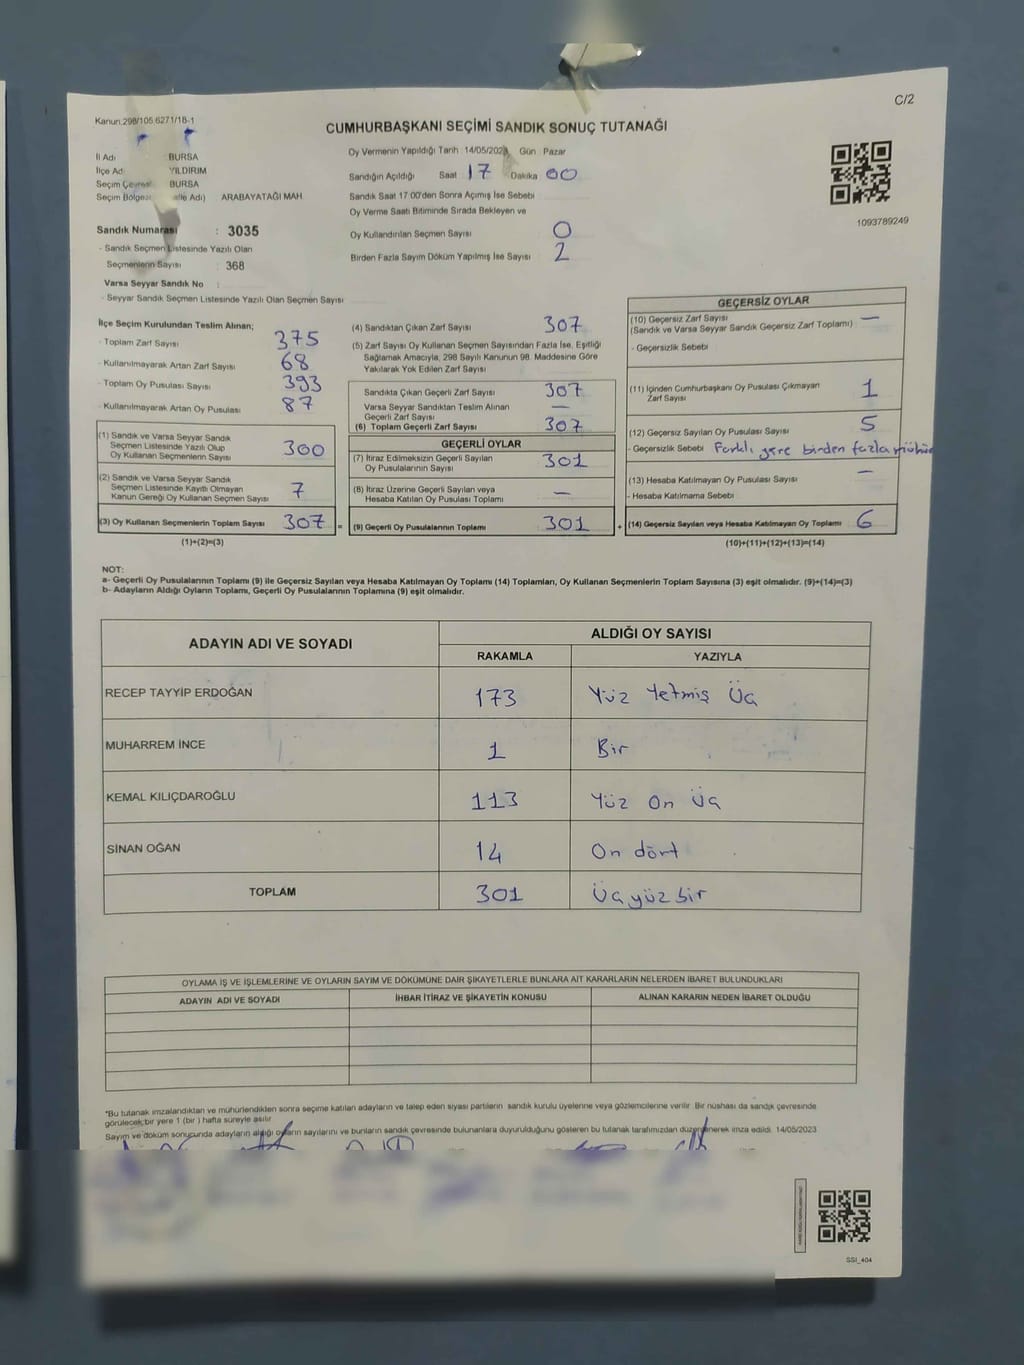 C/2
Kanun:298/105,6271/18-1
CUMHURBAŞKANI SEÇİMİ SANDIK SONUÇ TUTANAĞI
İl Adı BURSA
İlçe Adı YILDIRIM
Seçim Çevresi BURSA
Seçim Bölgesi Adı) ARABAYATAĞI MAH
Sandık Numarası : 3035
- Sandık Seçmen Listesinde Yazılı Olan
Seçmenlerin Sayısı : 368
Varsa Seyyar Sandık No :
- Seyyar Sandık Seçmen Listesinde Yazılı Olan Seçmen Sayısı
Oy Vermenin Yapıldığı Tarih :14/05/2023 Gün : Pazar
Sandığın Açıldığı Saat 17 Dakika 00
Sandık Saat 17:00'den Sonra Açımış İse Sebebi
Oy Verme Saati Bitiminde Sırada Bekleyen ve
Oy Kullandırılan Seçmen Sayısı 0
Birden Fazla Sayım Döküm Yapılmış İse Sayısı 2
1093789249
İlçe Seçim Kurulundan Teslim Alınan;
- Toplam Zarf Sayısı 375
- Kullanılmayarak Artan Zarf Sayısı 68
- Toplam Oy Pusulası Sayısı 393
- Kullanılmayarak Artan Oy Pusulası 87
(1) Sandık ve Varsa Seyyar Sandık
Seçmen Listesinde Yazılı Olup
Oy Kullanan Seçmenlerin Sayısı 300
(2) Sandık ve Varsa Seyyar Sandık
Seçmen Listesinde Kayıtlı Olmayan
Kanun Gereği Oy Kullanan Seçmen Sayısı 7
(3) Oy Kullanan Seçmenlerin Toplam Sayısı 307 =
(1)+(2)=(3)
(4) Sandıktan Çıkan Zarf Sayısı 307
(5) Zarf Sayısı Oy Kullanan Seçmen Sayısından Fazla İse, Eşitliği
Sağlamak Amacıyla, 298 Sayılı Kanunun 98. Maddesine Göre
Yakılarak Yok Edilen Zarf Sayısı
Sandıkta Çıkan Geçerli Zarf Sayısı 307
Varsa Seyyar Sandıktan Teslim Alınan
Geçerli Zarf Sayısı —
(6) Toplam Geçerli Zarf Sayısı 307
GEÇERLİ OYLAR
(7) İtiraz Edilmeksizin Geçerli Sayılan
Oy Pusulalarının Sayısı 301
(8) İtiraz Üzerine Geçerli Sayılan veya
Hesaba Katılan Oy Pusulası Sayısı —
(9) Geçerli Oy Pusulalarının Toplamı 301 +
GEÇERSİZ OYLAR
(10) Geçersiz Zarf Sayısı —
(Sandık ve Varsa Seyyar Sandık Geçersiz Zarf Toplamı)
- Geçersizlik Sebebi
(11) İçinden Cumhurbaşkanı Oy Pusulası Çıkmayan
Zarf Sayısı 1
(12) Geçersiz Sayılan Oy Pusulası Sayısı 5
- Geçersizlik Sebebi Farklı yere birden fazla mühür
(13) Hesaba Katılmayan Oy Pusulası Sayısı —
- Hesaba Katılmama Sebebi
(14) Geçersiz Sayılan veya Hesaba Katılmayan Oy Toplamı 6
(10)+(11)+(12)+(13)=(14)
NOT:
a- Geçerli Oy Pusulalarının Toplamı (9) ile Geçersiz Sayılan veya Hesaba Katılmayan Oy Toplamı (14) Toplamları, Oy Kullanan Seçmenlerin Toplam Sayısına (3) eşit olmalıdır. (9)+(14)=(3)
b- Adayların Aldığı Oyların Toplamı, Geçerli Oy Pusulalarının Toplamına (9) eşit olmalıdır.
ADAYIN ADI VE SOYADI ALDIĞI OY SAYISI
RAKAMLA YAZIYLA
RECEP TAYYİP ERDOĞAN 173 Yüz Yetmiş Üç
MUHARREM İNCE 1 Bir
KEMAL KILIÇDAROĞLU 113 Yüz On Üç
SİNAN OĞAN 14 On dört
TOPLAM 301 Üçyüzbir
OYLAMA İŞ VE İŞLEMLERİNE VE OYLARIN SAYIM VE DÖKÜMÜNE DAİR ŞİKAYETLERLE BUNLARA AİT KARARLARIN NELERDEN İBARET BULUNDUKLARI
ADAYIN ADI VE SOYADI İHBAR İTİRAZ VE ŞİKAYETİN KONUSU ALINAN KARARIN NEDEN İBARET OLDUĞU
*Bu tutanak imzalandıktan ve mühürlendikten sonra seçime katılan adayların ve talep eden siyasi partilerin sandık kurulu üyelerine veya gözlemcilerine verilir. Bir nüshası da sandık çevresinde
görülecek bir yere 1 (bir ) hafta süreyle asılır.
Sayım ve döküm sonucunda adayların aldığı oyların sayılarını ve bunların sandık çevresinde bulunanlara duyurulduğunu gösteren bu tutanak tarafımızdan düzenlenerek imza edildi. 14/05/2023
SSI_404